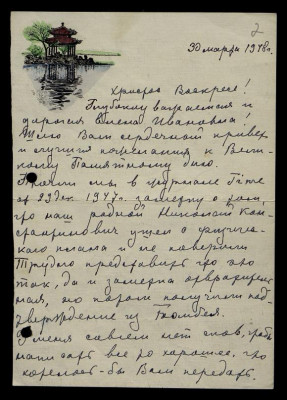 2
30 марта 1948г.
Христос Воскресе!
Глубоку важаемая и
дорогая Елена Ивановна!
Шлю Вам сердечный привет
и лучшие пожелания к Вели-
кому Памятному дню.
Прочли мы в журнале Time
от 29 дек. 1947г. заметку о том,
что наш родной Николай Кон-
стантинович ушел с физичес-
кого плана и не поверили
Трудно представить что это
так, да и заметка отвратитель-
ная, но потом получили под-
тверждение из Бомбея.
У меня совсем нет слов, чтобы
написать все то хорошее, что
хотелось-бы Вам передать.